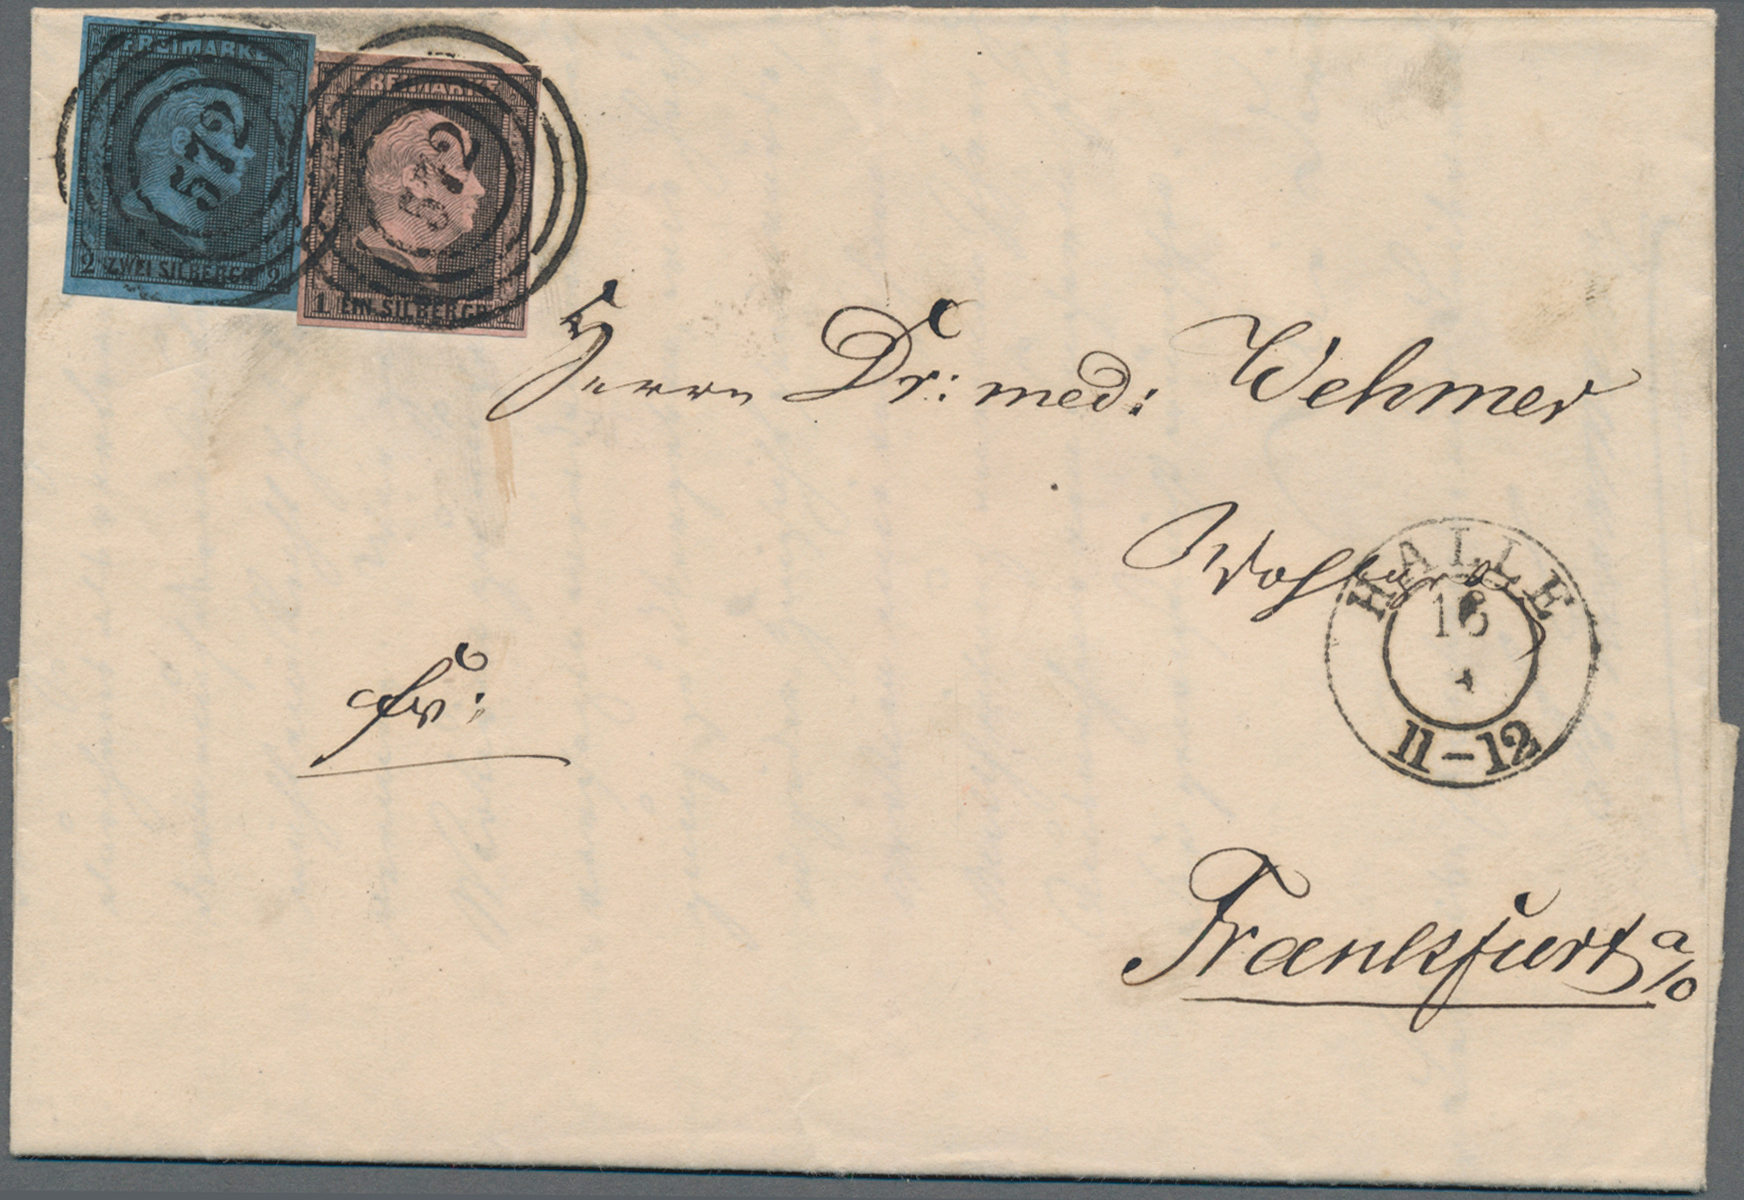 FREIMARKE
572
2 ZWEI SILBERGR. 2
FREIMARKE
572
1 EIN SILBERGR.
Herrn Dr: med: Wehmer
Wohlgb
HALLE
16
11-12
fr:
Frankfurt a/O